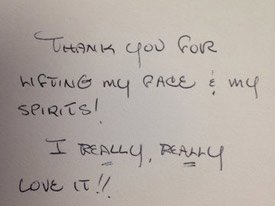 THANK YOU FOR
LIFTING my FACE & my
SPIRITS!
I REALLY, REALLY
LOVE IT!!